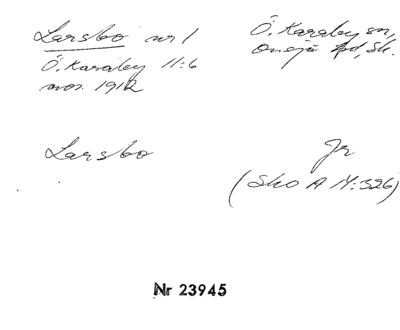 Larsbo nr 1
Ö. Karaby 11:6
nov. 1912
Ö. Karaby sn,
Onsjö hd, Sk.
Larsbo
Jr
(Sko A 14:326)
Nr 23945